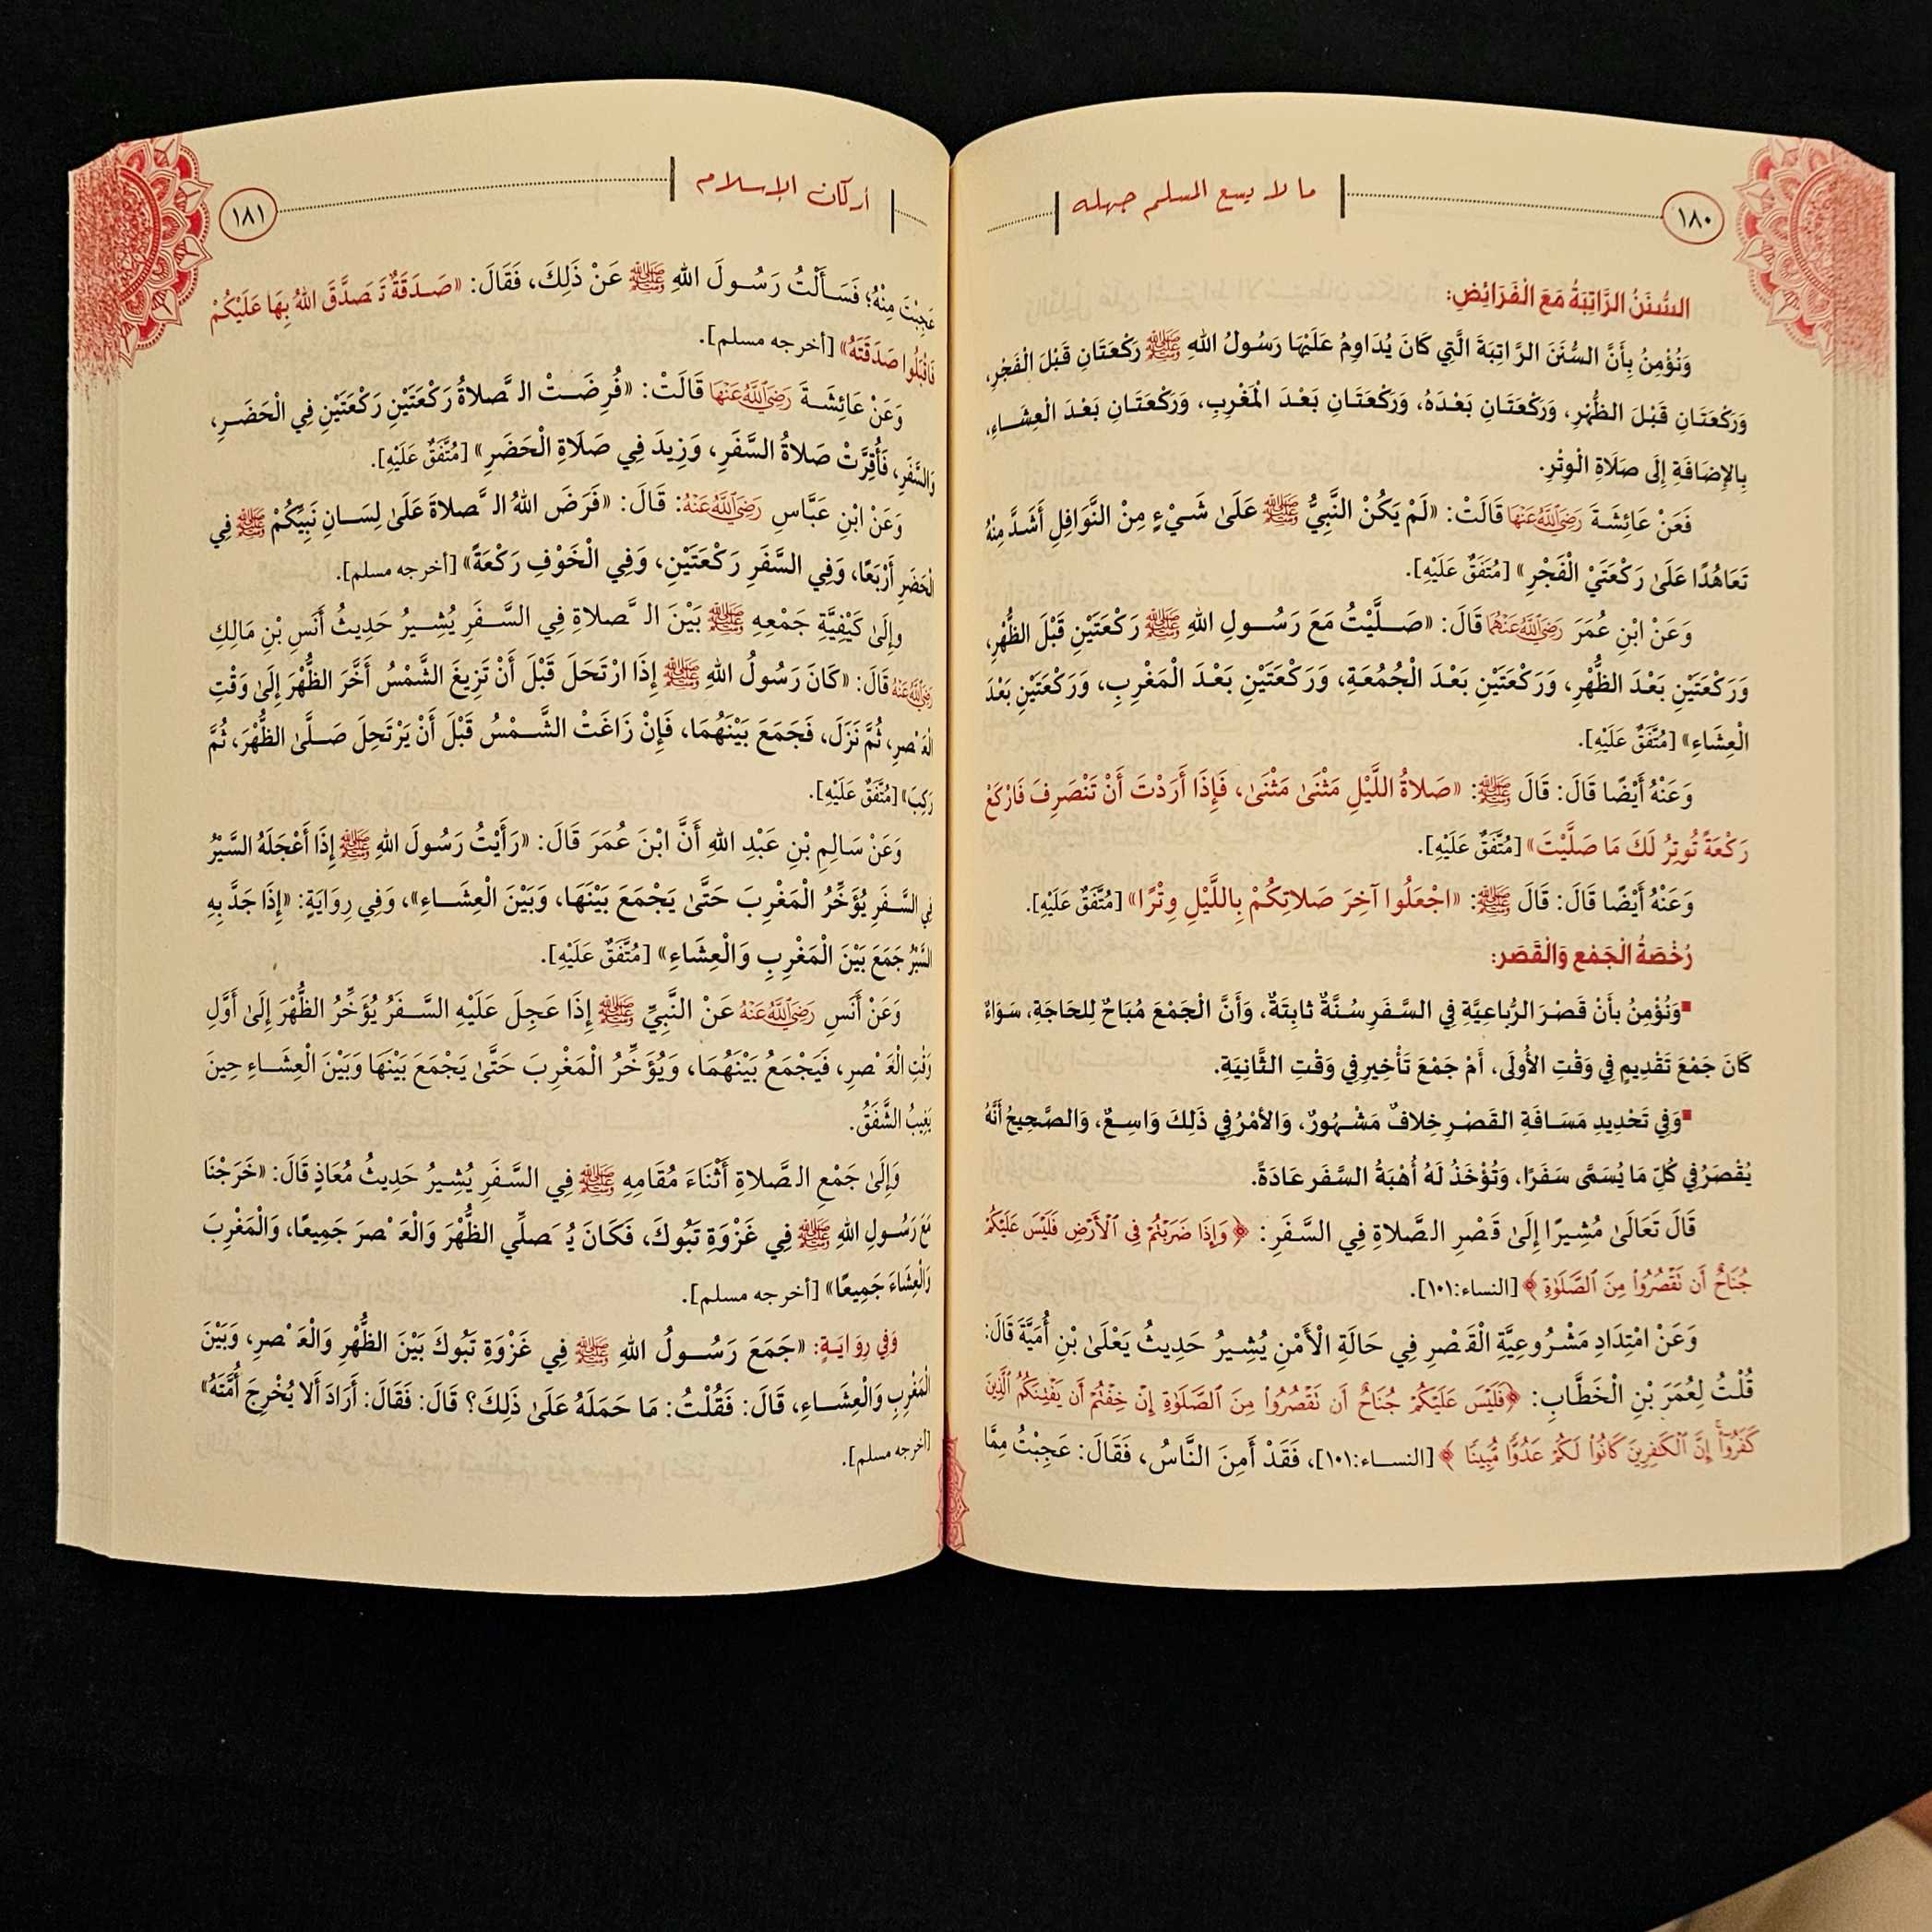 ما لا يسع المسلم جهله
١٨٠
السُّنَنُ الرَّاتِبَةُ مَعَ الْفَرَائِضِ:
وَنُؤْمِنُ بِأَنَّ السُّنَنَ الرَّاتِبَةَ الَّتِي كَانَ يُدَاوِمُ عَلَيْهَا رَسُولُ اللهِ ﷺ رَكْعَتَانِ قَبْلَ الْفَجْرِ،
وَرَكْعَتَانِ قَبْلَ الظُّهْرِ، وَرَكْعَتَانِ بَعْدَهُ، وَرَكْعَتَانِ بَعْدَ الْمَغْرِبِ، وَرَكْعَتَانِ بَعْدَ الْعِشَاءِ،
بِالإِضَافَةِ إِلَى صَلَاةِ الْوِتْرِ.
فَعَنْ عَائِشَةَ رَضِيَ اللَّهُ عَنْهَا قَالَتْ: «لَمْ يَكُنْ النَّبِيُّ ﷺ عَلَىٰ شَيْءٍ مِنْ النَّوَافِلِ أَشَدَّ مِنْهُ
تَعَاهُدًا عَلَىٰ رَكْعَتَيْ الْفَجْرِ» [مُتَّفَقٌ عَلَيْهِ].
وَعَنْ ابْنِ عُمَرَ رَضِيَ اللَّهُ عَنْهُمَا قَالَ: «صَلَّيْتُ مَعَ رَسُولِ اللهِ ﷺ رَكْعَتَيْنِ قَبْلَ الظُّهْرِ،
وَرَكْعَتَيْنِ بَعْدَ الظُّهْرِ، وَرَكْعَتَيْنِ بَعْدَ الْجُمُعَةِ، وَرَكْعَتَيْنِ بَعْدَ الْمَغْرِبِ، وَرَكْعَتَيْنِ بَعْدَ
الْعِشَاءِ» [مُتَّفَقٌ عَلَيْهِ].
وَعَنْهُ أَيْضًا قَالَ: قَالَ ﷺ: «صَلَاةُ اللَّيْلِ مَثْنَىٰ مَثْنَىٰ، فَإِذَا أَرَدْتَ أَنْ تَنْصَرِفَ فَارْكَعْ
رَكْعَةً تُوتِرُ لَكَ مَا صَلَّيْتَ» [مُتَّفَقٌ عَلَيْهِ].
وَعَنْهُ أَيْضًا قَالَ: قَالَ ﷺ: «اجْعَلُوا آخِرَ صَلاتِكُمْ بِاللَّيْلِ وِتْرًا» [مُتَّفَقٌ عَلَيْهِ].
رُخْصَةُ الْجَمْعِ وَالْقَصَر:
▪وَنُؤْمِنُ بأَنْ قَصْرَ الرُّباعِيَّةِ فِي السَّفَرِ سُنَّةٌ ثابِتَةٌ، وَأَنَّ الْجَمْعَ مُبَاحٌ لِلحَاجَةِ، سَوَاءٌ
كَانَ جَمْعَ تَقْدِيمٍ فِي وَقْتِ الأُولَى، أَمْ جَمْعَ تَأْخِيرٍ فِي وَقْتِ الثَّانِيَةِ.
▪وَفِي تَحْدِيدِ مَسَافَةِ القَصْرِ خِلافٌ مَشْهُورٌ، وَالأَمْرُ فِي ذَلِكَ وَاسِعٌ، وَالصَّحِيحُ أَنَّهُ
يُقْصَرُ فِي كُلِّ مَا يُسَمَّى سَفَرًا، وَتُؤْخَذُ لَهُ أُهْبَةُ السَّفَر عَادَةً.
قَالَ تَعَالَىٰ مُشِيرًا إِلَىٰ قَصْرِ الصَّلاةِ فِي السَّفَرِ: ﴿وَإِذَا ضَرَبْتُمْ فِي ٱلْأَرْضِ فَلَيْسَ عَلَيْكُمْ
جُنَاحٌ أَن تَقْصُرُوا۟ مِنَ ٱلصَّلَوٰةِ﴾ [النساء:١٠١].
وَعَنْ امْتِدَادِ مَشْرُوعِيَّةِ الْقَصْرِ فِي حَالَةِ الْأَمْنِ يُشِيرُ حَدِيثُ يَعْلَىٰ بْنِ أُمَيَّةَ قَالَ:
قُلْتُ لِعُمَرَ بْنِ الْخَطَّابِ: ﴿فَلَيْسَ عَلَيْكُمْ جُنَاحٌ أَن تَقْصُرُوا۟ مِنَ ٱلصَّلَوٰةِ إِنْ خِفْتُمْ أَن يَفْتِنَكُمُ ٱلَّذِينَ
كَفَرُوٓا۟ إِنَّ ٱلْكَٰفِرِينَ كَانُوا۟ لَكُمْ عَدُوًّا مُّبِينًا﴾ [النساء:١٠١]، فَقَدْ أَمِنَ النَّاسُ، فَقَالَ: عَجِبْتُ مِمَّا
أركان الإسلام
١٨١
عَجِبْتَ مِنْهُ؛ فَسَأَلْتُ رَسُولَ اللهِ ﷺ عَنْ ذَلِكَ، فَقَالَ: «صَدَقَةٌ تَصَدَّقَ اللهُ بِهَا عَلَيْكُمْ
فَاقْبَلُوا صَدَقَتَهُ» [أخرجه مسلم].
وَعَنْ عَائِشَةَ رَضِيَ اللَّهُ عَنْهَا قَالَتْ: «فُرِضَتْ الصَّلاةُ رَكْعَتَيْنِ رَكْعَتَيْنِ فِي الْحَضَرِ،
وَالسَّفَرِ، فَأُقِرَّتْ صَلاةُ السَّفَرِ، وَزِيدَ فِي صَلَاةِ الْحَضَرِ» [مُتَّفَقٌ عَلَيْهِ].
وَعَنْ ابْنِ عَبَّاسِ رَضِيَ اللَّهُ عَنْهُ: قَالَ: «فَرَضَ اللهُ الصَّلاةَ عَلَىٰ لِسَانِ نَبِيِّكُمْ ﷺ فِي
الْحَضَرِ أَرْبَعًا، وَفِي السَّفَرِ رَكْعَتَيْنِ، وَفِي الْخَوْفِ رَكْعَةً» [أخرجه مسلم].
وإِلَىٰ كَيْفِيَّةِ جَمْعِهِ ﷺ بَيْنَ الصَّلاةِ فِي السَّفَرِ يُشِيرُ حَدِيثُ أَنَسِ بْنِ مَالِكِ
رَضِيَ اللَّهُ عَنْهُ قَالَ: «كَانَ رَسُولُ اللهِ ﷺ إِذَا ارْتَحَلَ قَبْلَ أَنْ تَزِيغَ الشَّمْسُ أَخَّرَ الظُّهْرَ إِلَىٰ وَقْتِ
الْعَصْرِ، ثُمَّ نَزَلَ، فَجَمَعَ بَيْنَهُمَا، فَإِنْ زَاغَتْ الشَّمْسُ قَبْلَ أَنْ يَرْتَحِلَ صَلَّىٰ الظُّهْرَ، ثُمَّ
رَكِبَ» [مُتَّفَقٌ عَلَيْهِ].
وَعَنْ سَالِمِ بْنِ عَبْدِ اللهِ أَنَّ ابْنَ عُمَرَ قَالَ: «رَأَيْتُ رَسُولَ اللهِ ﷺ إِذَا أَعْجَلَهُ السَّيْرُ
فِي السَّفَرِ يُؤَخِّرُ الْمَغْرِبَ حَتَّىٰ يَجْمَعَ بَيْنَهَا، وَبَيْنَ الْعِشَاءِ»، وَفِي رِوَايَةٍ: «إِذَا جَدَّ بِهِ
السَّيْرُ جَمَعَ بَيْنَ الْمَغْرِبِ وَالْعِشَاءِ» [مُتَّفَقٌ عَلَيْهِ].
وَعَنْ أَنَسِ رَضِيَ اللَّهُ عَنْهُ عَنْ النَّبِيِّ ﷺ إِذَا عَجِلَ عَلَيْهِ السَّفَرُ يُؤَخِّرُ الظُّهْرَ إِلَىٰ أَوَّلِ
وَقْتِ الْعَصْرِ، فَيَجْمَعُ بَيْنَهُمَا، وَيُؤَخِّرُ الْمَغْرِبَ حَتَّىٰ يَجْمَعَ بَيْنَهَا وَبَيْنَ الْعِشَاءِ حِينَ
يَغِيبُ الشَّفَقُ.
وَإِلَىٰ جَمْعِ الصَّلاةِ أَثْنَاءَ مُقَامِهِ ﷺ فِي السَّفَرِ يُشِيرُ حَدِيثُ مُعَاذٍ قَالَ: «خَرَجْنَا
مَعَ رَسُولِ اللهِ ﷺ فِي غَزْوَةِ تَبُوكَ، فَكَانَ يُصَلِّي الظُّهْرَ وَالْعَصْرَ جَمِيعًا، وَالْمَغْرِبَ
وَالْعِشَاءَ جَمِيعًا» [أخرجه مسلم].
وَفِي رِوَايَةٍ: «جَمَعَ رَسُولُ اللهِ ﷺ فِي غَزْوَةِ تَبُوكَ بَيْنَ الظُّهْرِ وَالْعَصْرِ، وَبَيْنَ
الْمَغْرِبِ وَالْعِشَاءِ، قَالَ: فَقُلْتُ: مَا حَمَلَهُ عَلَىٰ ذَلِكَ؟ قَالَ: فَقَالَ: أَرَادَ أَلا يُحْرِجَ أُمَّتَهُ»
[أخرجه مسلم].